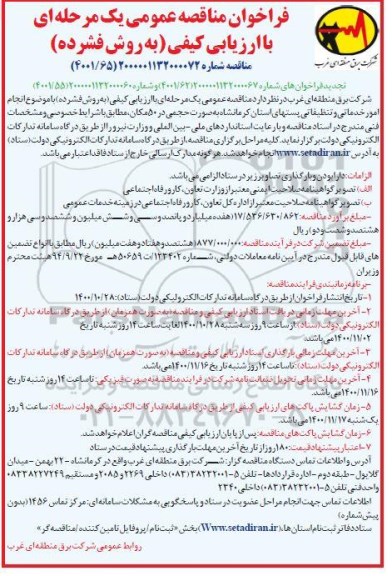 فراخوان مناقصه عمومی یک مرحله‌ای
با ارزیابی کیفی (به روش فشرده)
شرکت برق منطقه‌ای غرب
مناقصه شماره ۲۰۰۰۰۰۱۱۳۲۰۰۰۰۷۲ (۴۰۰۱/۶۵)
تجدید فراخوان‌های شماره ۲۰۰۰۰۰۱۱۳۲۰۰۰۰۶۷ (۴۰۰۱/۶۲) و شماره ۲۰۰۰۰۰۱۱۳۲۰۰۰۰۶۰ (۴۰۰۱/۵۵)
شرکت برق منطقه‌ای غرب در نظر دارد مناقصه عمومی یک مرحله‌ای با ارزیابی کیفی (به روش فشرده) با موضوع انجام
امور خدماتی و تنظیفاتی پستهای استان کرمانشاه به صورت حجمی در ۵۰ مکان، مطابق با شرایط خصوصی و مشخصات
فنی مندرج در اسناد مناقصه و با رعایت استانداردهای ملی-بین المللی و وزارت نیرو را از طریق درگاه سامانه تدارکات
الکترونیکی دولت برگزار نماید. کلیه مراحل برگزاری مناقصه از طریق درگاه سامانه تدارکات الکترونیکی دولت (ستاد)
به آدرس www.setadiran.ir انجام خواهد شد. هرگونه مدارک ارسالی خارج از ستاد فاقد اعتبار می باشد.
الزامات: دارا بودن و بارگذاری تصاویر زیر در ستاد الزامی می باشد.
الف) تصویر گواهینامه صلاحیت ایمنی معتبر از وزارت تعاون، کار و رفاه اجتماعی
ب) تصویر گواهینامه صلاحیت معتبر از اداره کل تعاون، کار و رفاه اجتماعی در زمینه خدمات عمومی
-مبلغ برآورد مناقصه: ۱۷/۵۳۶/۶۳۰/۸۶۲ (هفده میلیارد و پانصد و سی و شش میلیون و ششصد و سی هزار و
هشتصد و شصت و دو) ریال
-مبلغ تضمین شرکت در فرآیند مناقصه: ۸۷۷/۰۰۰/۰۰۰ (هشتصد و هفتاد و هفت میلیون) ریال مطابق با انواع تضمین
های قابل قبول مندرج در آیین نامه معاملات دولتی، شماره ۱۲۳۴۰۲/ت۵۰۶۵۹هـ مورخ ۹۴/۹/۲۲ هیئت محترم
وزیران
-برنامه زمانبندی فرایند مناقصه:
۱-تاریخ انتشار فراخوان از طریق درگاه سامانه تدارکات الکترونیکی دولت (ستاد): ۱۴۰۰/۱۰/۲۸
۲-آخرین مهلت زمانی دریافت اسناد ارزیابی کیفی و مناقصه (به صورت همزمان) از طریق درگاه سامانه تدارکات
الکترونیکی دولت (ستاد): از ساعت ۹ روز سه شنبه ۱۴۰۰/۱۰/۲۸ لغایت ساعت ۱۴ روز شنبه تاریخ
۱۴۰۰/۱۱/۰۲ می باشد.
۳-آخرین مهلت زمانی بارگذاری اسناد ارزیابی کیفی و مناقصه (به صورت همزمان) از طریق درگاه سامانه تدارکات
الکترونیکی دولت (ستاد): تا ساعت ۱۴ روز شنبه تاریخ ۱۴۰۰/۱۱/۱۶ می باشد.
۴-آخرین مهلت زمانی تحویل ضمانت نامه شرکت در فرایند مناقصه به صورت فیزیکی: تا ساعت ۱۴ روز شنبه تاریخ
۱۴۰۰/۱۱/۱۶ می باشد.
۵-زمان گشایش پاکت های ارزیابی کیفی از طریق درگاه سامانه تدارکات الکترونیکی دولت (ستاد): ساعت ۹ روز
یک شنبه ۱۴۰۰/۱۱/۱۷ می باشد.
۶-زمان گشایش پاکت های مناقصه: پس از پایان ارزیابی کیفی مناقصه گران اعلام خواهد شد.
۷-اعتبار پیشنهاد قیمت: ۱۸۰ روز از تاریخ آخرین مهلت بارگذاری پیشنهاد قیمت در ستاد
آدرس و اطلاعات تماس دستگاه مناقصه گزار: شرکت برق منطقه‌ای غرب واقع در کرمانشاه - ۲۲ بهمن - میدان
گلایول-طبقه دوم-اداره قراردادها-تلفن ۵-۳۸۲۳۲۰۰۱(۰۸۳) داخلی ۲۲۶۹ و ۲۰۸۵ و مستقیم ۰۸۳۳۸۲۲۷۲۴۹
واحد فنی تلفن ۵-۳۸۲۳۲۰۰۱(۰۸۳) داخلی ۲۳۴۰
اطلاعات تماس جهت انجام مراحل عضویت در ستاد و پاسخگویی به مشکلات سامانه‌ای: مرکز تماس ۱۴۵۶ (بدون
پیش شماره)
ستاد دفاتر ثبت نام استان ها، (www.setadiran.ir) بخش «ثبت نام/پروفایل تامین کننده/مناقصه گر»
روابط عمومی شرکت برق منطقه‌ای غرب